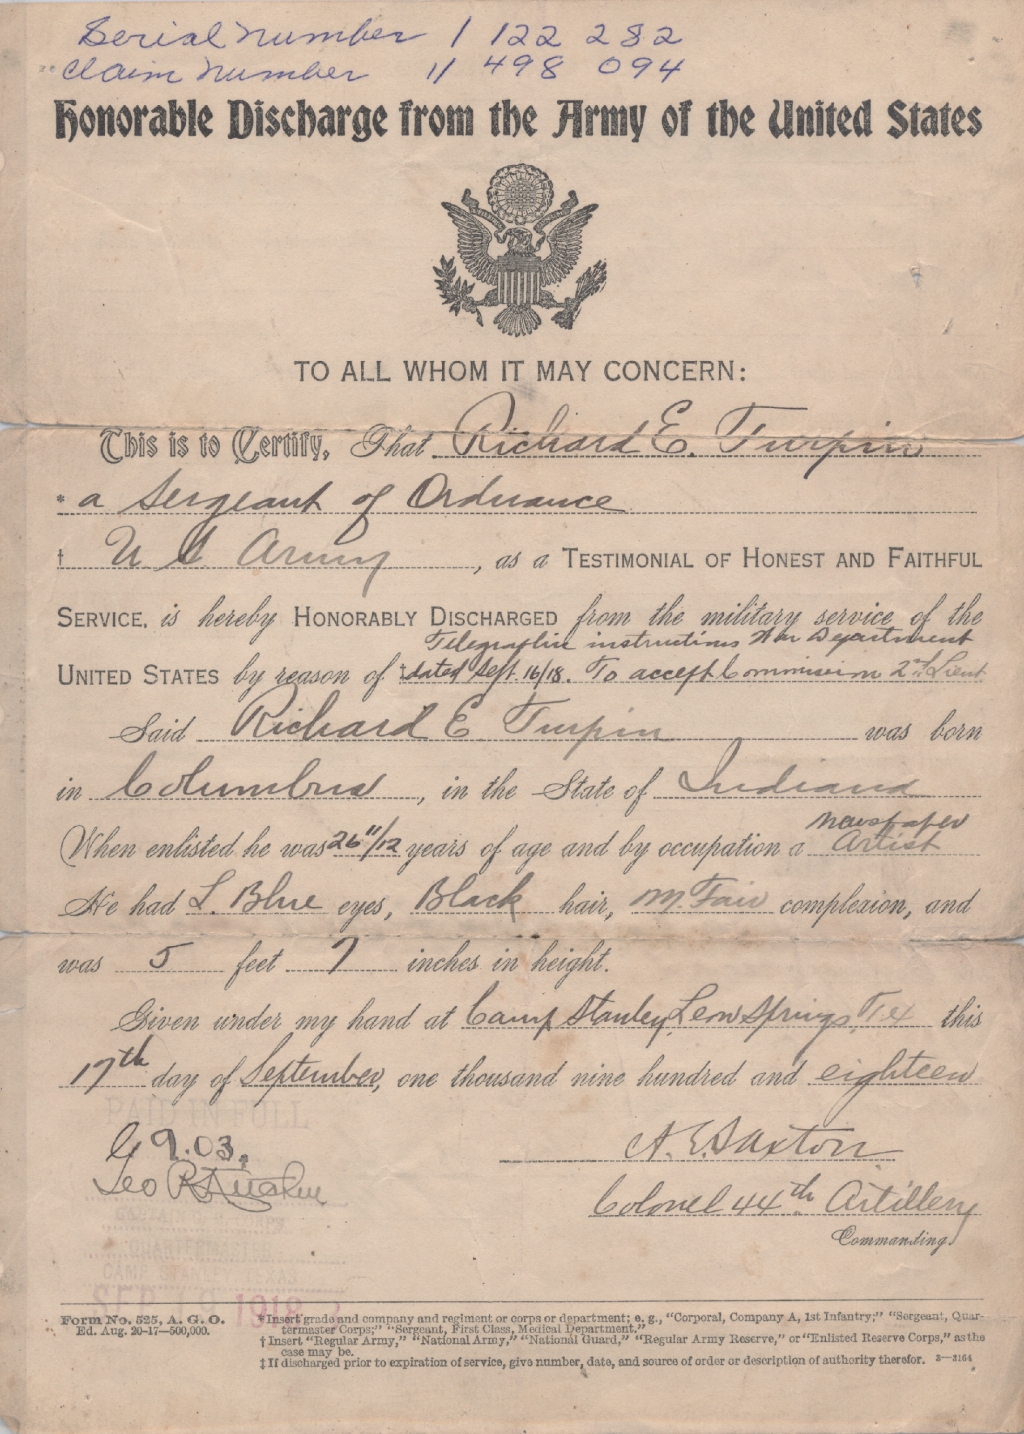 Serial Number 1 122 282
Claim Number 11 498 094
Honorable Discharge from the Army of the United States
TO ALL WHOM IT MAY CONCERN:
This is to Certify, That Richard E. Turpin
* a Sergeant of Ordnance
† U S Army, as a TESTIMONIAL OF HONEST AND FAITHFUL
SERVICE, is hereby HONORABLY DISCHARGED from the military service of the
Telegraphic instructions War Department
UNITED STATES by reason of ‡ dated Sept. 16/18. To accept Commission 2nd Lieut
Said Richard E Turpin was born
in Columbus, in the State of Indiana
Newspaper
When enlisted he was 26 11/12 years of age and by occupation a Artist
He had L. Blue eyes, Black hair, M. Fair complexion, and
was 5 feet 7 inches in height.
Given under my hand at Camp Stanley, Leon Springs, Tex this
17th day of September, one thousand nine hundred and eighteen
PAID IN FULL
9.03.
A. E. Saxton
Geo R
Colonel 44th Artillery
Commanding
CAMP STANLEY, TEXAS
SEP 19 1918
Form No. 525, A. G. O.
Ed. Aug. 20-17—500,000.
*Insert grade and company and regiment or corps or department; e. g., "Corporal, Company A, 1st Infantry;" "Sergeant, Quar-
termaster Corps;" "Sergeant, First Class, Medical Department."
† Insert "Regular Army," "National Army," "National Guard," "Regular Army Reserve," or "Enlisted Reserve Corps," as the
case may be.
‡ If discharged prior to expiration of service, give number, date, and source of order or description of authority therefor. 3—3164